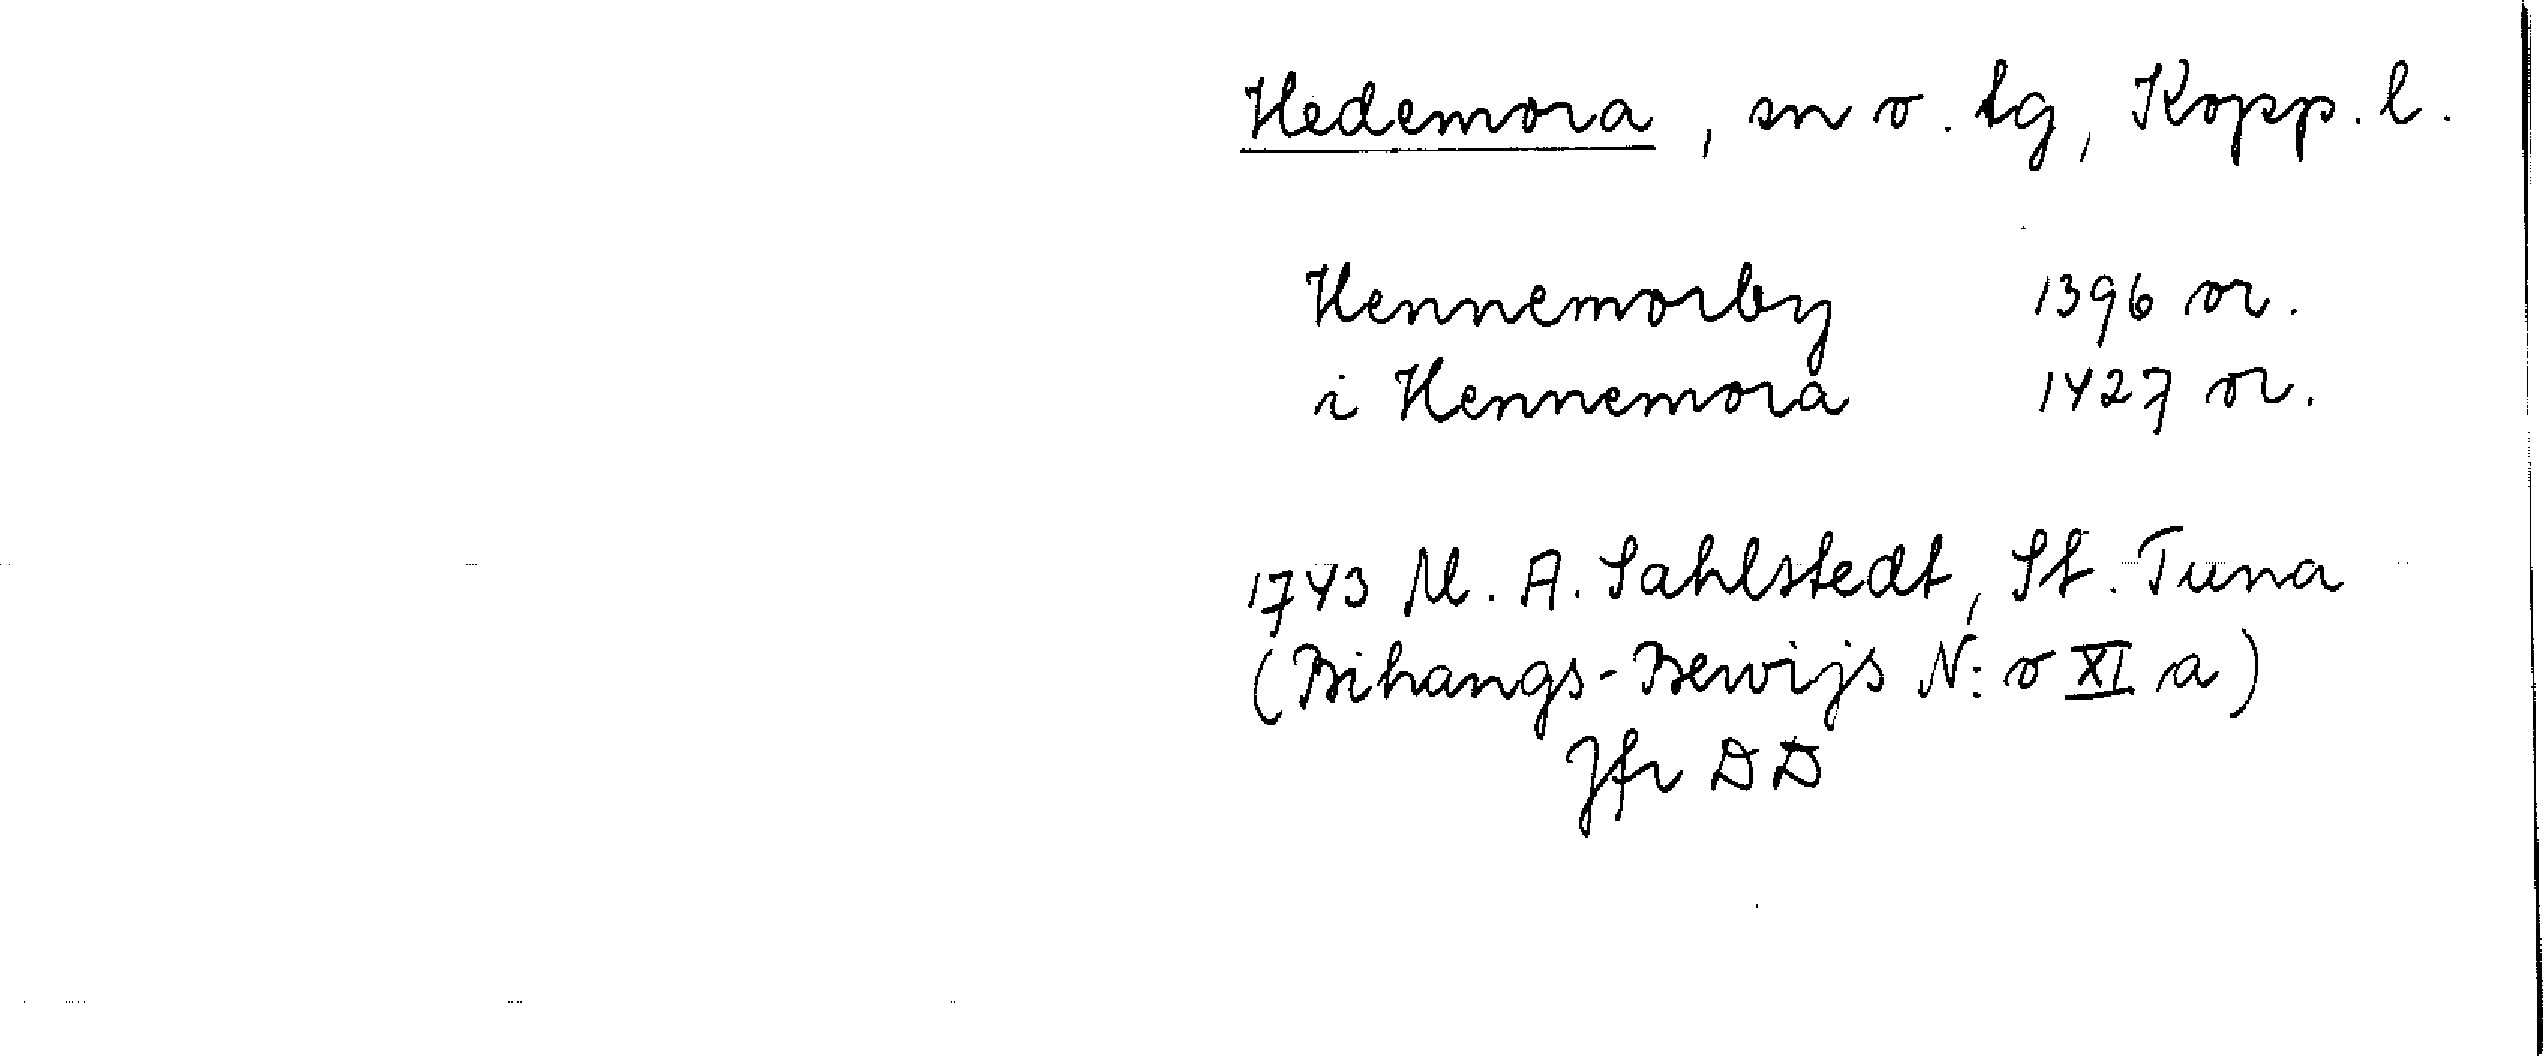 Hedemora, sn o. tg, Kopp. l.
Hennemorby 1396 or.
i Hennemora 1427 or.
1743 M. A. Sahlstedt, St. Tuna
(Bihangs-Bewijs N:o XI a)
Jfr DD